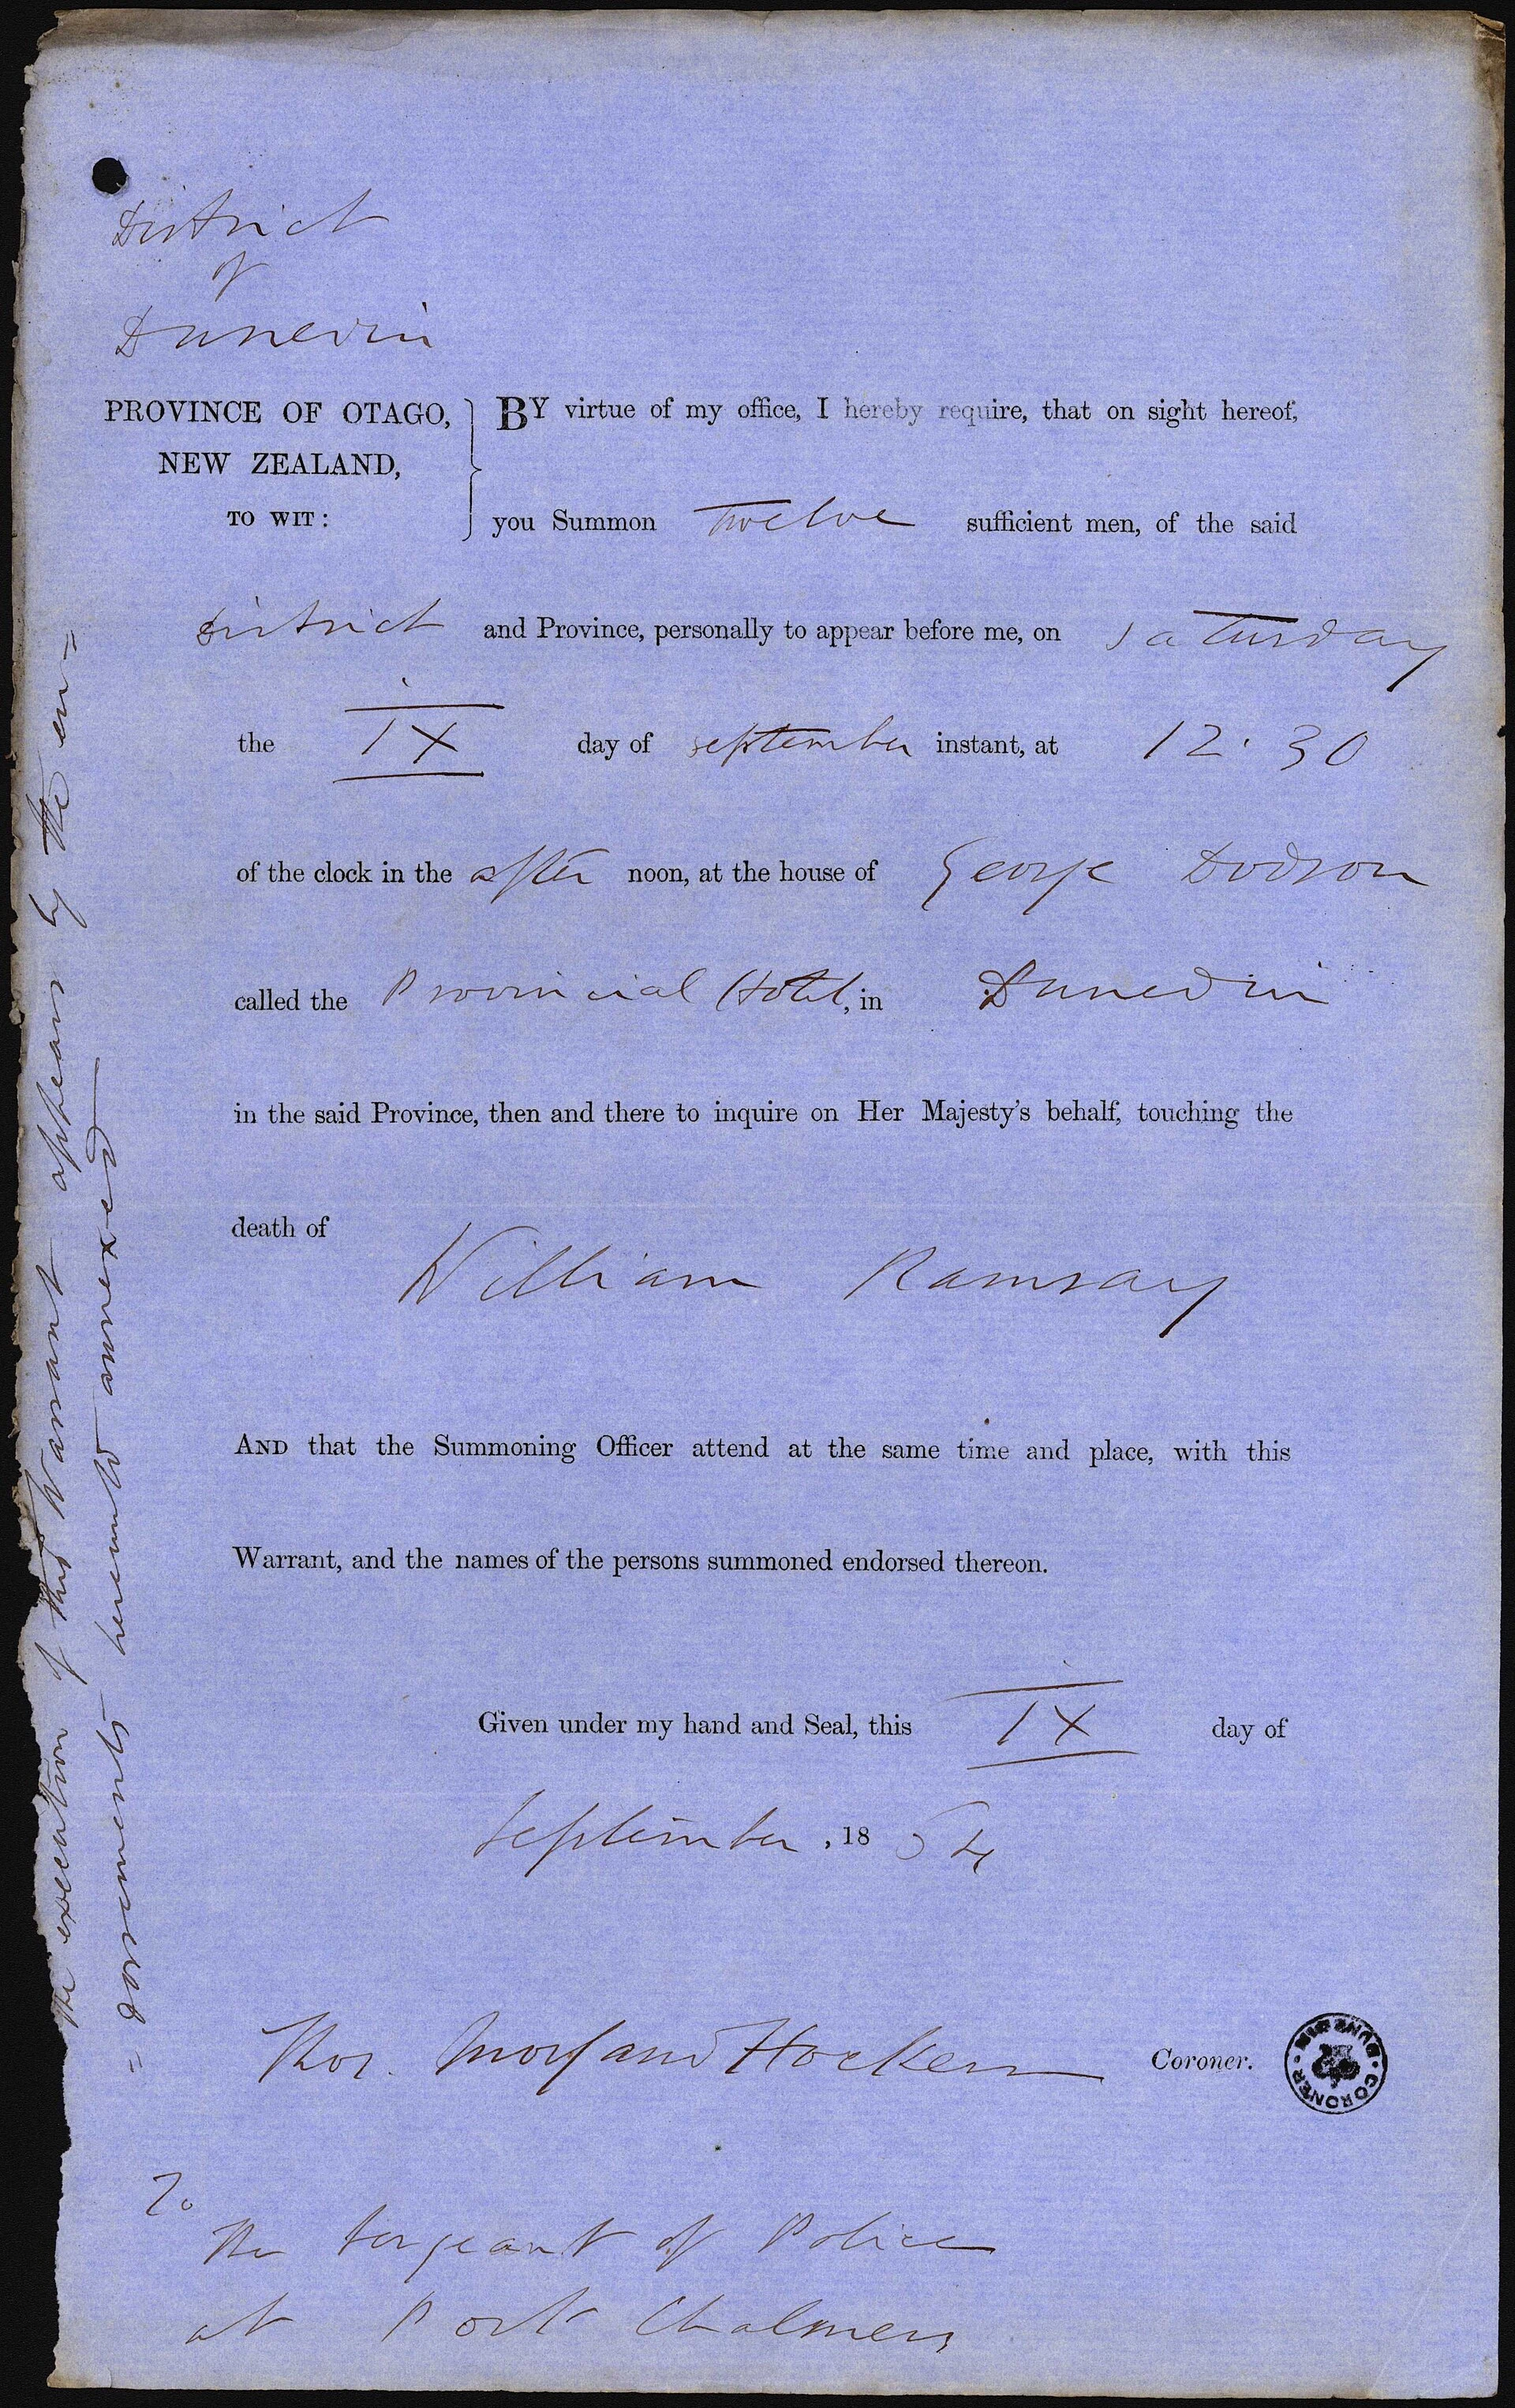 District
of
Dunedin
PROVINCE OF OTAGO,
NEW ZEALAND,
TO WIT:
BY virtue of my office, I hereby require, that on sight hereof,
you Summon Twelve sufficient men, of the said
District and Province, personally to appear before me, on Saturday
the IX day of September instant, at 12.30
of the clock in the after noon, at the house of George Dodson
called the Provincial Hotel, in Dunedin
in the said Province, then and there to inquire on Her Majesty's behalf, touching the
death of
William Ramsay
AND that the Summoning Officer attend at the same time and place, with this
Warrant, and the names of the persons summoned endorsed thereon.
Given under my hand and Seal, this IX day of
September, 18
Thos. Morland Hocken Coroner.
DUNEDIN · CORONER ·
To
The Sergeant of Police
at Port Chalmers
The execution of this Warrant appears by the en=
=dorsements hereunto annexed